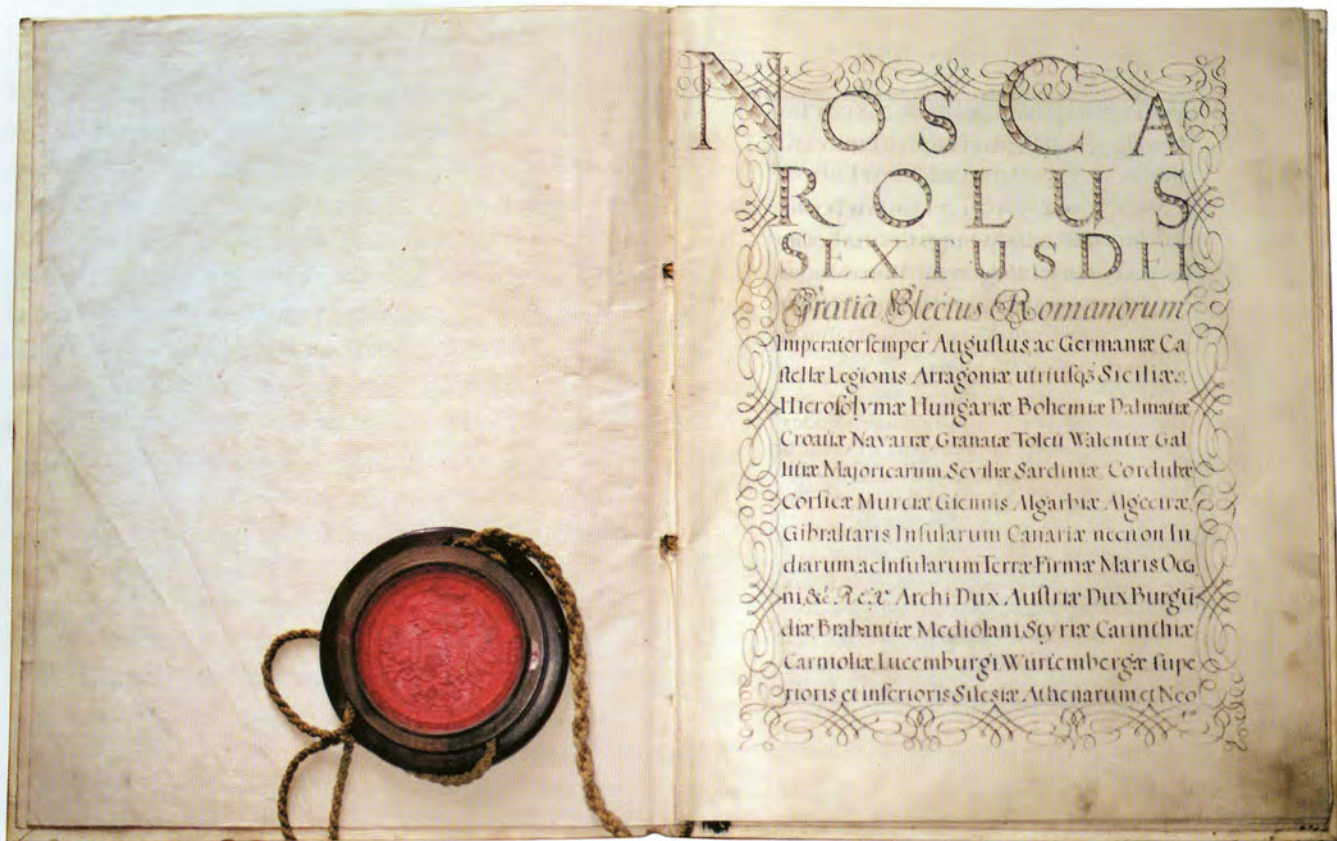 NOS CA
ROLUS
SEXTUS DEI
Gratiâ Electus Romanorum
Imperator semper Augustus ac Germaniæ Ca
stellæ Legionis Arragoniæ utriusq3 Siciliæ
Hierosolymæ Hungariæ Bohemiæ Dalmatiæ
Croatiæ Navarræ, Granatæ Toleti Walentiæ Gal
litiæ Majoricarum Seviliæ Sardiniæ, Cordubæ
Corsicæ Murciæ Giennis Algarbiæ Algeciræ,
Gibraltaris Insularum Canariæ necnon In
diarum ac Insularum Terræ Firmæ Maris Ocea
ni, &c. Rex Archi Dux Austriæ Dux Burgu
diæ Brabantiæ Mediolani Styriæ Carinthiæ
Carnioliæ, Lucemburgi Würtembergæ supe
rioris et inferioris Silesiæ Athenarum et Neo